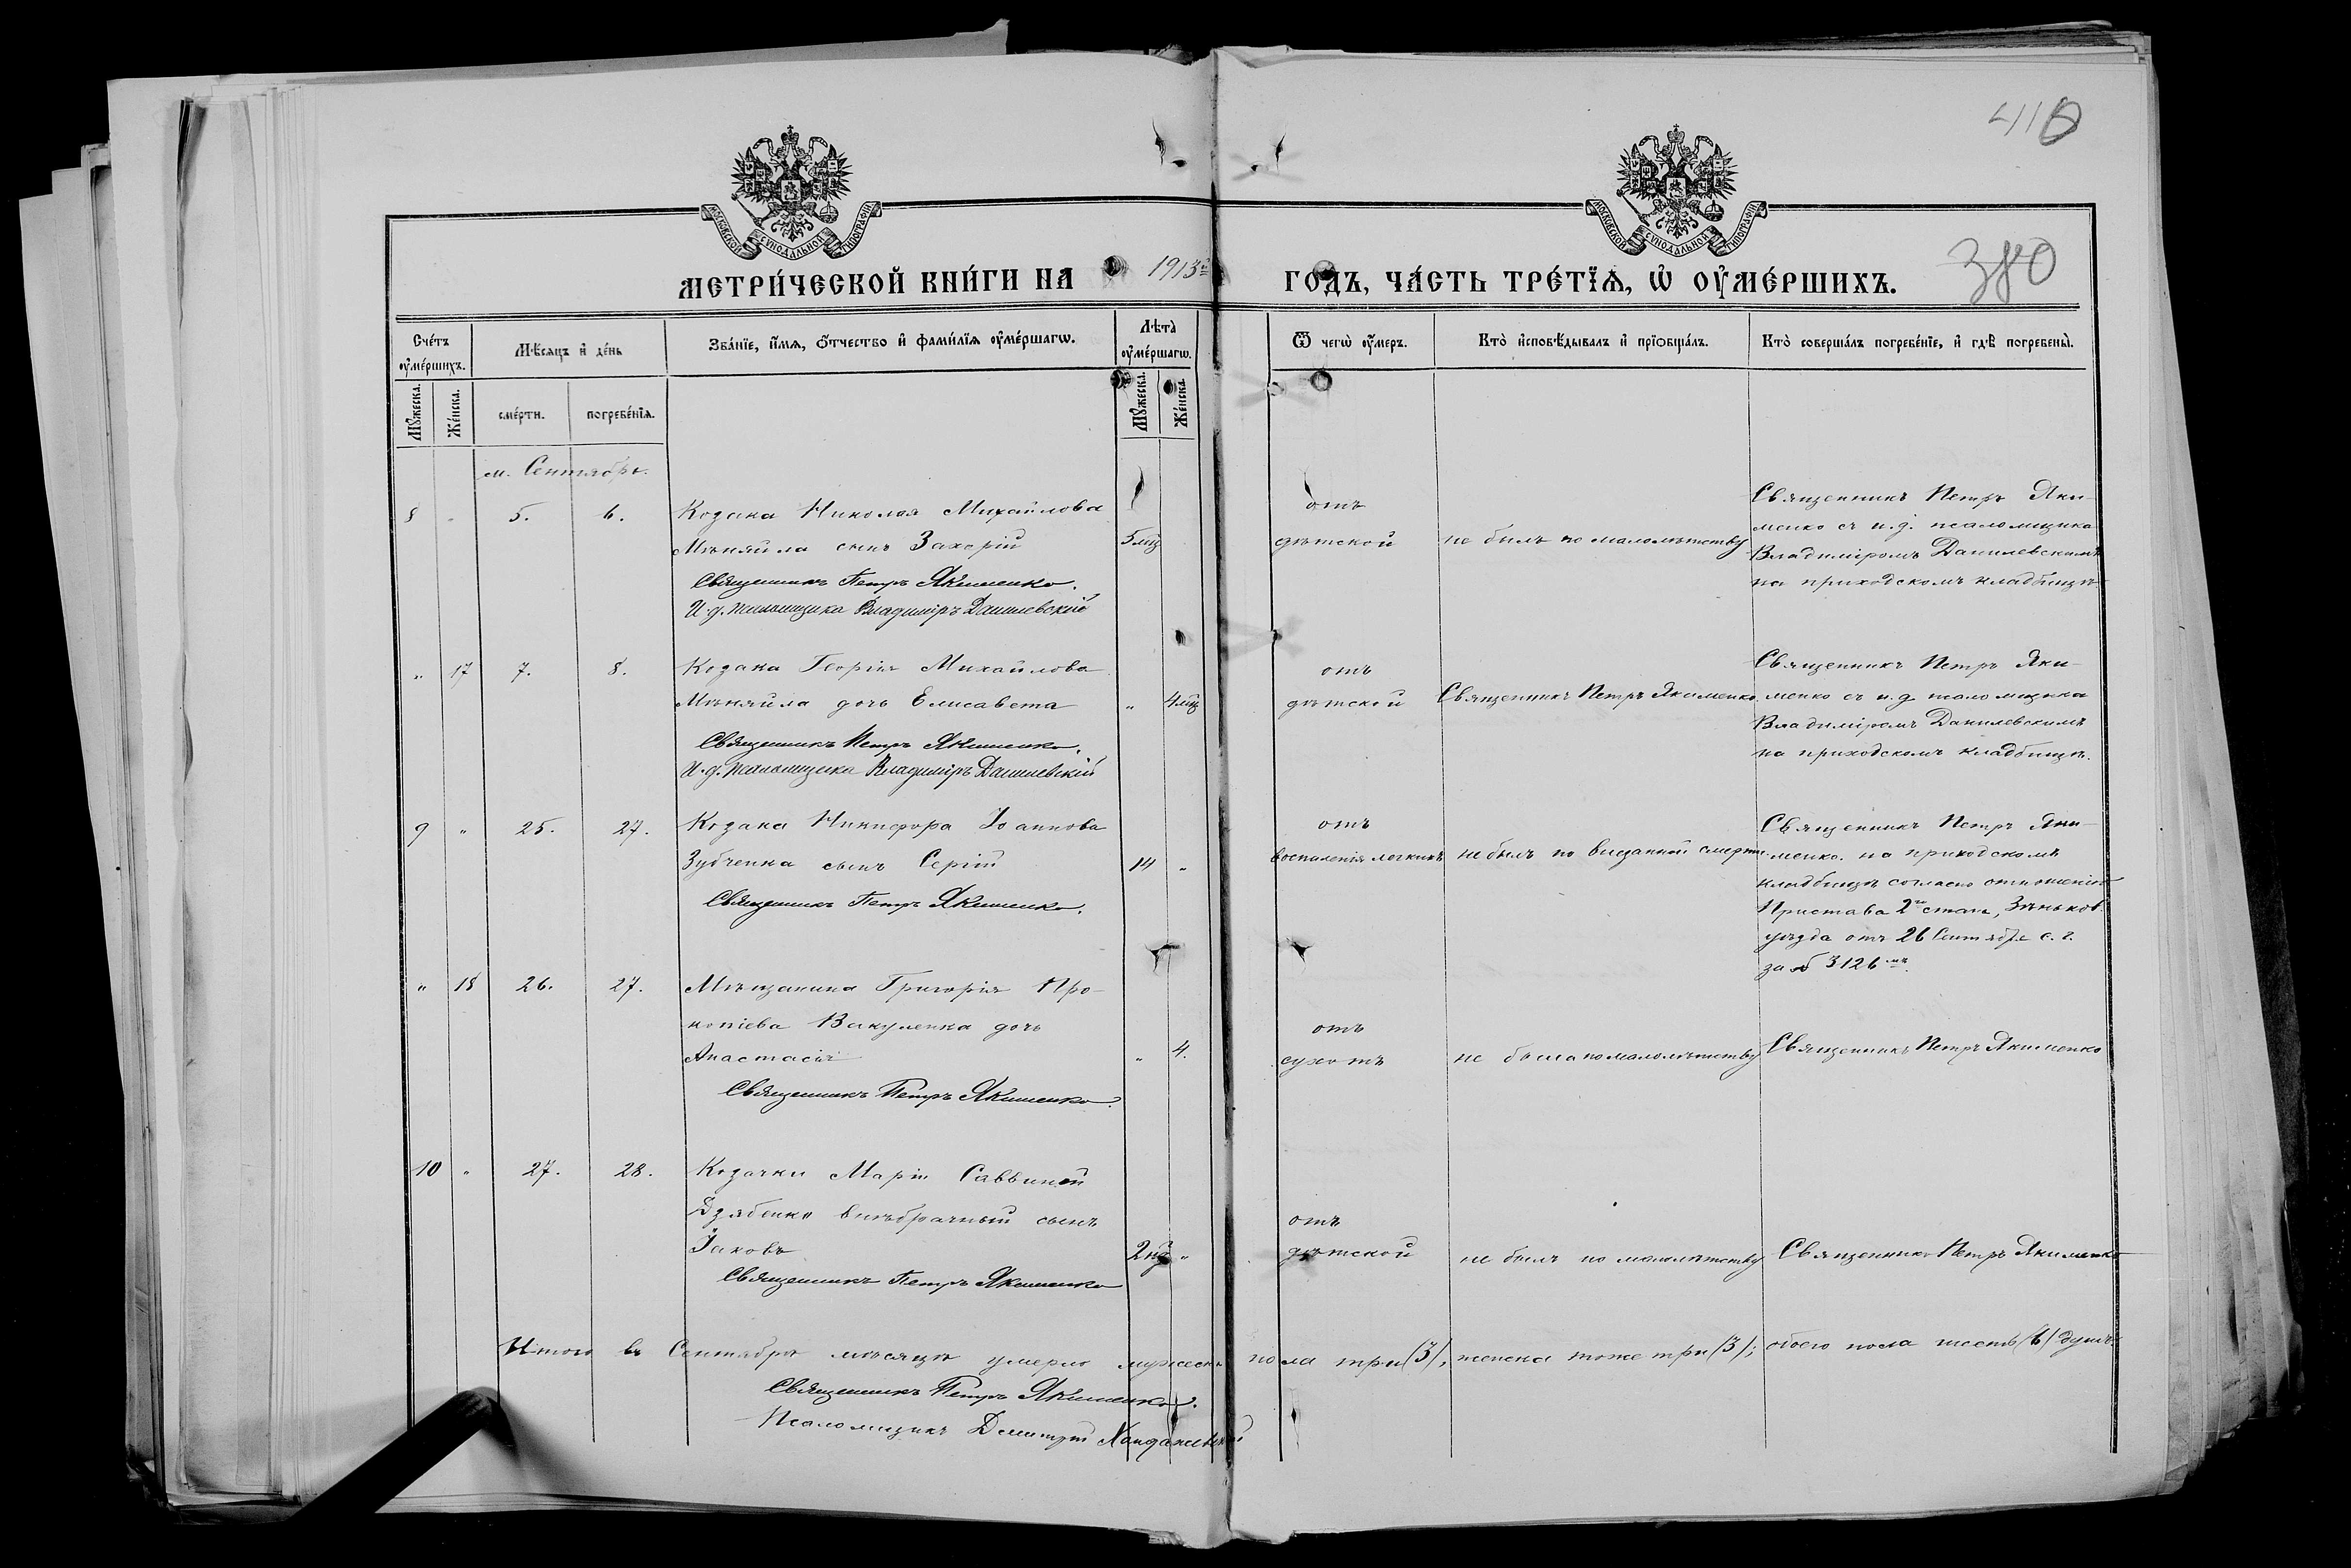 410
МОСКОВСКОЙ СѴНОДАЛЬНОЙ ТИПОГРАФІИ
МОСКОВСКОЙ СѴНОДАЛЬНОЙ ТИПОГРАФІИ
МЕТРИ́ЧЕСКОЙ КНИ́ГИ НА 1913й ГОДЪ, ЧА́СТЬ ТРЕ́ТЇѦ, Ѡ҆ ОУ҆МЕ́РШИХЪ.
380
Сче́тъ оу҆ме́ршихъ.
Мѣ́сяцъ и҆ де́нь
Зва́нїе, и҆́мя, ѻ҆́тчество и҆ фами́лїя оу҆ме́ршагѡ.
Лѣ́та оу҆ме́ршагѡ.
Ѿ чегѡ̀ оу҆́меръ.
Кто̀ и҆сповѣ́дывалъ и҆ прїѻбща́лъ.
Кто̀ соверша́лъ погребе́нїе, и҆ гдѣ̀ погребены̀.
Мꙋ́жеска.
Же́нска.
сме́рти.
погребе́нїя.
Мꙋ́жеска.
Же́нска.
м. Сентябрь.
8 " 5. 6.
Козака Николая Михайлова
Мѣняйла сынъ Захарій
Священникъ Петръ Якименко.
И.д. псаломщика Владиміръ Данилевскій
5 мц
отъ
дѣтской
не былъ по малолѣтству
Священникъ Петръ Яки-
менко съ и.д. псаломщика
Владиміромъ Данилевскимъ
на приходскомъ кладбищѣ
" 17 7. 8.
Козака Георгія Михайлова
Мѣняйла дочь Елисавета
Священникъ Петръ Якименко.
И.д. псаломщика Владиміръ Данилевскій
" 4 мц
отъ
дѣтской
Священникъ Петръ Якименко
Священникъ Петръ Яки-
менко съ и.д. псаломщика
Владиміромъ Данилевскимъ
на приходскомъ кладбищѣ.
9 " 25. 27.
Козака Никифора Іоаннова
Зубченка сынъ Сергій
Священникъ Петръ Якименко.
14 "
отъ
воспаленія легкихъ
не былъ по внезапной смерти
Священникъ Петръ Яки-
менко. на приходскомъ
кладбищѣ согласно отношенію
Пристава 2го стана, Зѣньков.
уѣзда отъ 26 Сентября с. г.
за № 3126мъ.
" 18 26. 27.
Мѣщанина Григорія Про-
копіева Вакуленка дочь
Анастасія
Священникъ Петръ Якименко.
" 4.
отъ
сухотъ
не была по малолѣтству
Священникъ Петръ Якименко
10 " 27. 28.
Козачки Маріи Саввиной
Дзябенко внѣбрачный сынъ
Іаковъ
Священникъ Петръ Якименко
2 нд "
отъ
дѣтской
не былъ по малолѣтству
Священникъ Петръ Якименко
Итого въ Сентябрѣ мѣсяцѣ умерло мужеска пола три (3), женска тоже три (3); обоего пола шесть (6) душъ.
Священникъ Петръ Якименко.
Псаломщикъ Димитрій